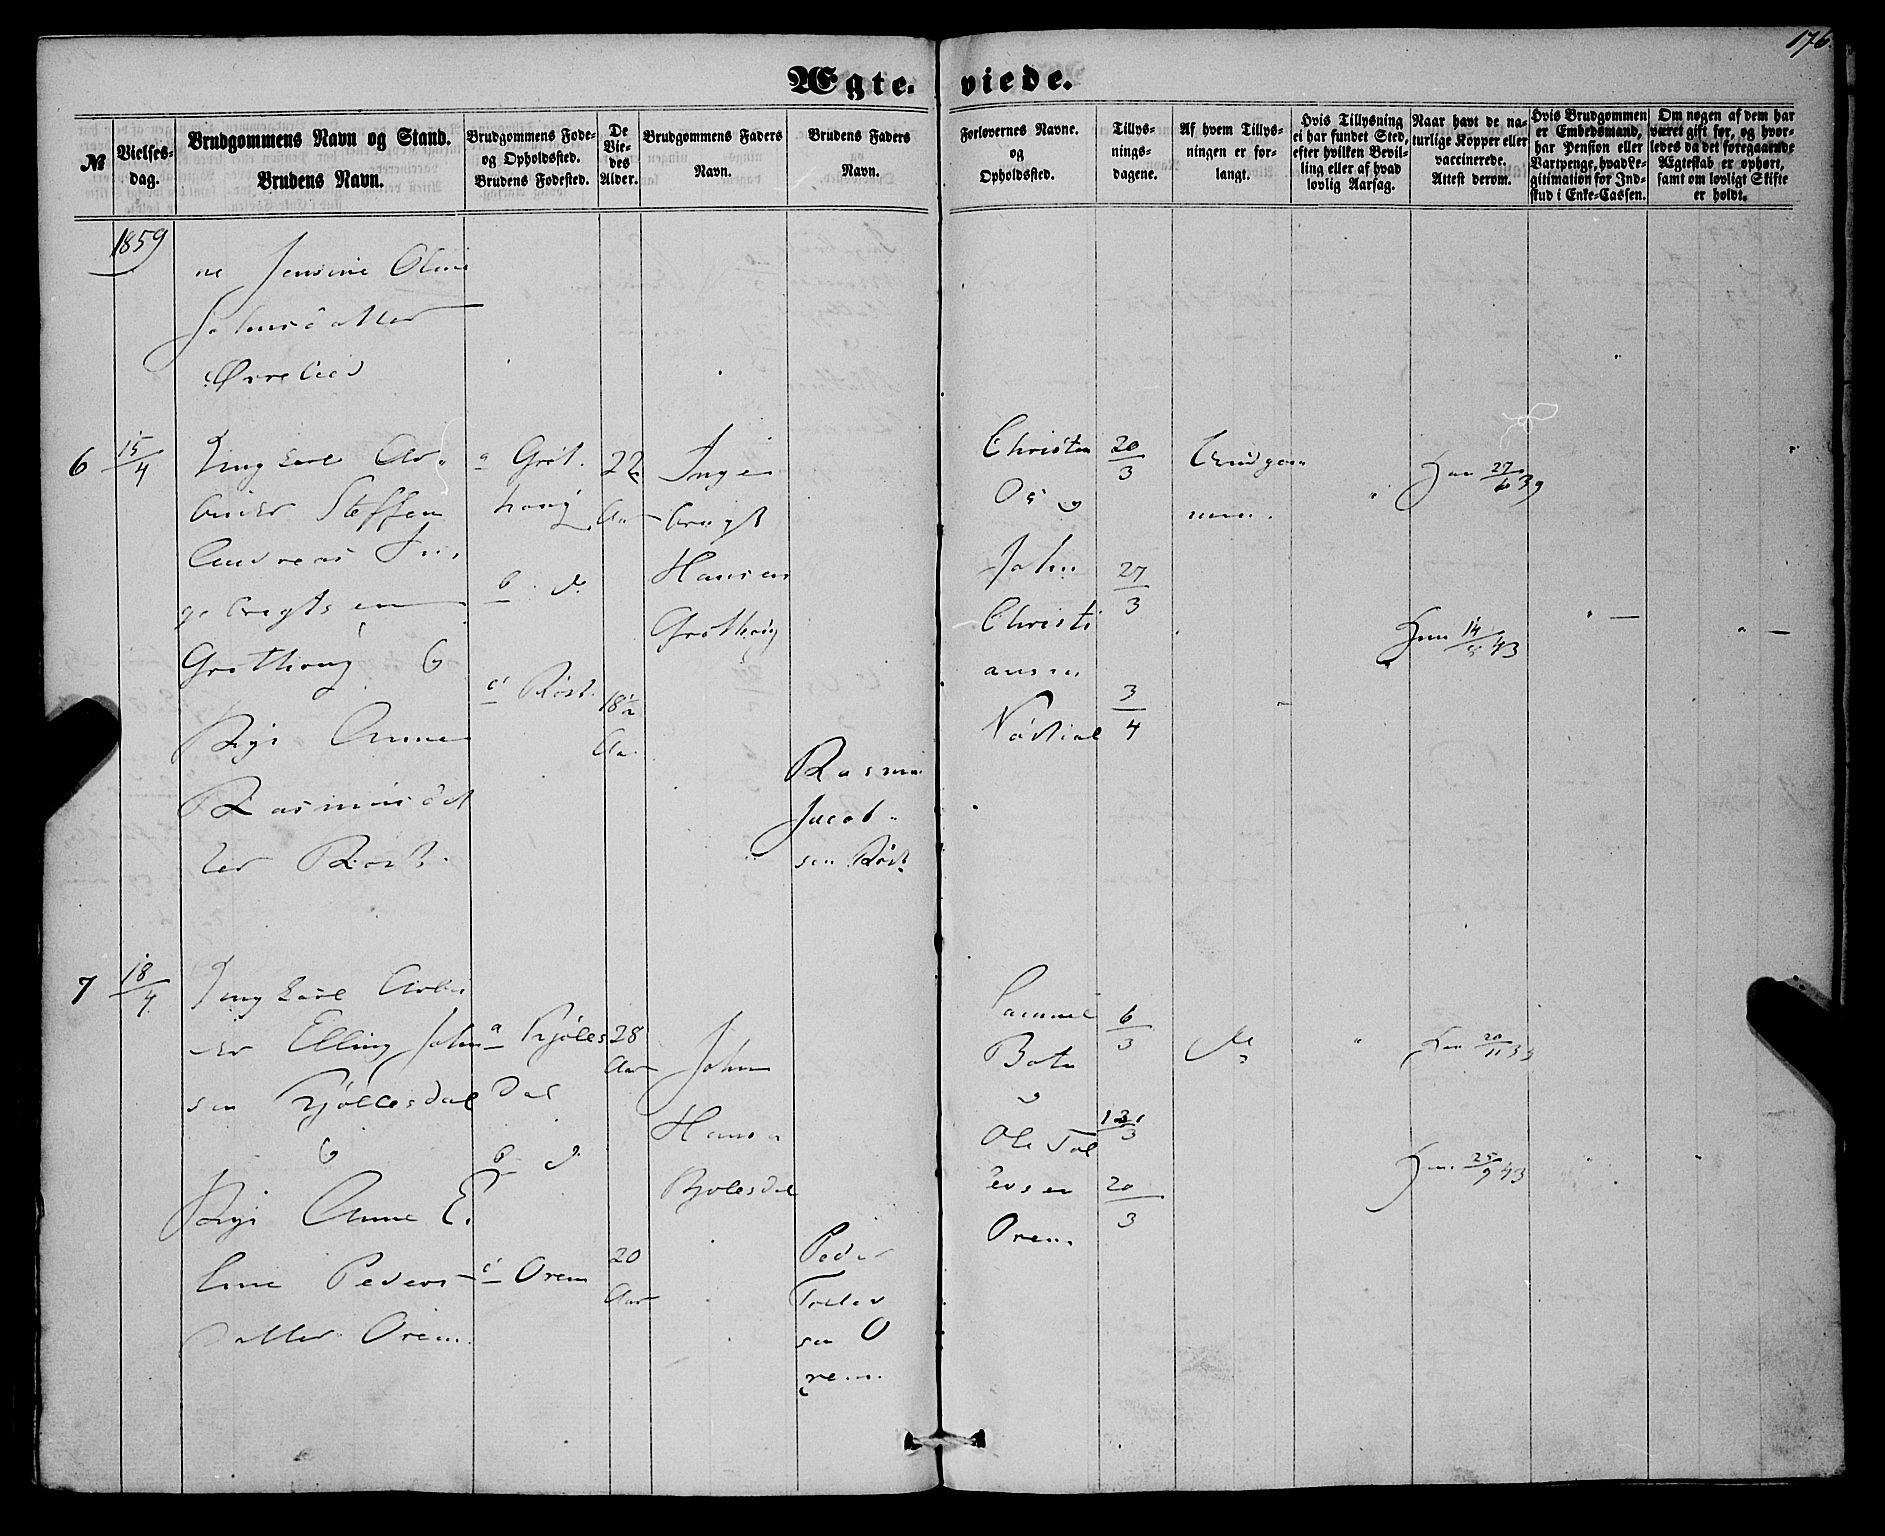 176.
Ægteviede.
№
Vielses-
dag.
Brudgommens Navn og Stand.
Brudens Navn.
Brudgommens Føde-
og Opholdssted.
Brudens Fødested.
De
Vie-
des
Alder.
Brudgommens Faders
Navn.
Brudens Faders
Navn.
Forlovernes Navne.
og
Opholdssted.
Tillys-
nings-
dagene.
Af hvem Tillys-
ningen er for-
langt.
Hvis Tillysning
ei har fundet Sted,
efter hvilken Bevil-
ling eller af hvad
lovlig Aarsag.
Naar havt de na-
turlige Kopper eller
vaccinerede.
Attest derom.
Hvis Brudgommen
er Embedsmand,
har Pension eller
Vartpenge, hvad Le-
gitimation for Ind-
skud i Enke-Cassen.
Om nogen af dem har
været gift før, og hvor-
ledes da det foregaaende
Ægteskab er ophørt,
samt om lovligt Skifte
er holdt.
1859
ne Jensine Oline
Johnsdatter
6
15/4
Ungkarl Ar-
beider Steffen
Andreas In-
gebregtsen
Grøthoug &
Pige Anne
Rasmusdat
ter Røst.
a Grøt.
houg
b d.
c Røst.
22
Aar
18½
Aar
Inge
bregt
Hansen
Grøthoug
Rasmus
Jacob-
sen Røst.
Christen
Os og
John
Christi
ansen
20/3
27/3
3/4
Brudgom
men.
Han 27/6 39
Hun 14/8 43
7
18/4
Ungkarl Arbei
der Elling John
sen Kjøllesdal
&
Pige Anne E.
line Peders
datter Orem.
a Kjøles
dal
b d.
c Orem
28
Aar
20
Aar
John
Hansen
Peder
sen O
rem.
Samuel
og
Ole Tol
levsen
Orem
6/3
13/3
20/3
Do
Han 20/11 33
Hun 25/9 43